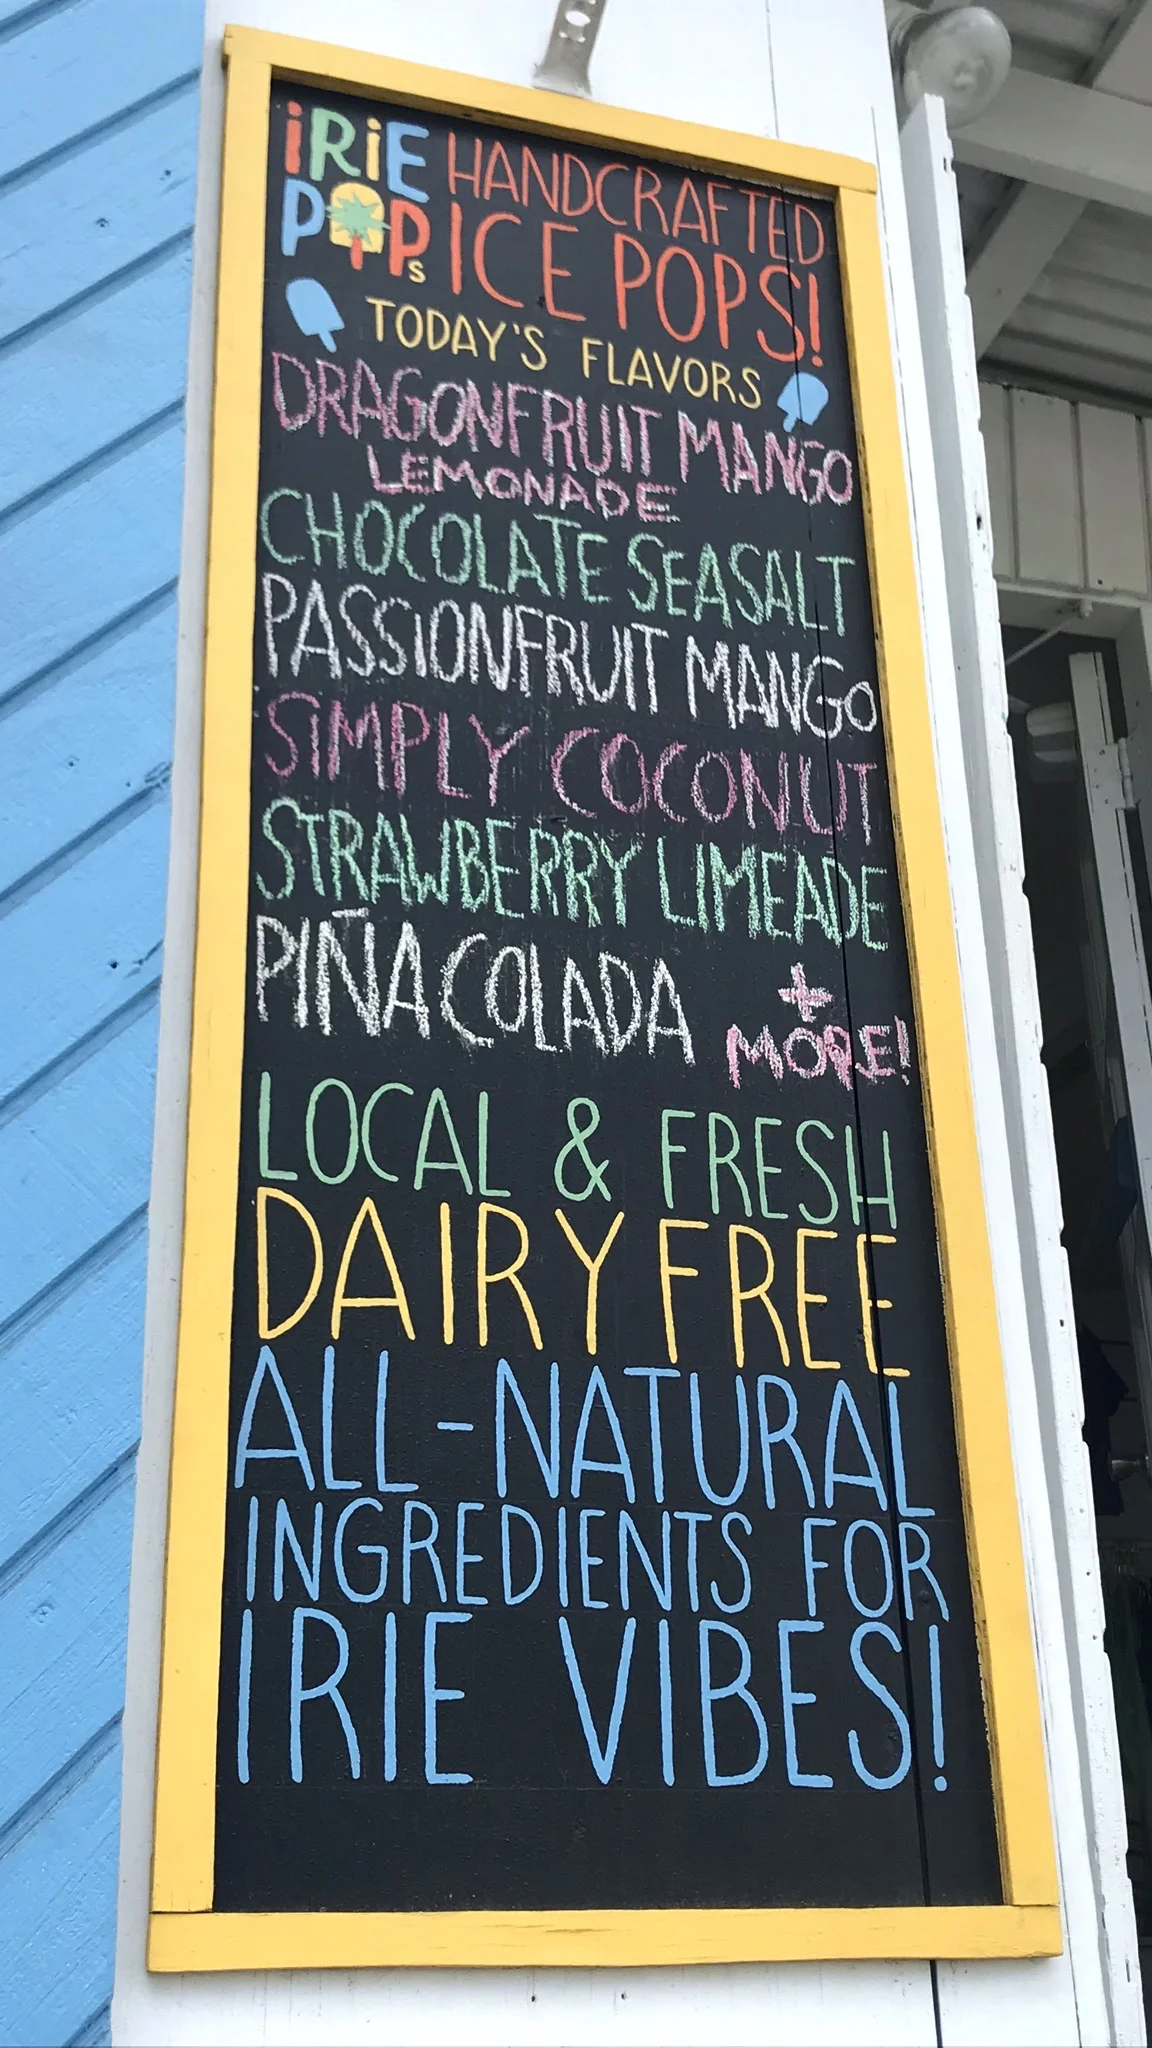 iRiE HANDCRAFTED
POPs ICE POPS!
TODAY'S FLAVORS
DRAGONFRUIT MANGO
LEMONADE
CHOCOLATE SEASALT
PASSIONFRUIT MANGO
SIMPLY COCONUT
STRAWBERRY LIMEADE
PIÑA COLADA +
MORE!
LOCAL & FRESH
DAIRY FREE
ALL-NATURAL
INGREDIENTS FOR
IRIE VIBES!